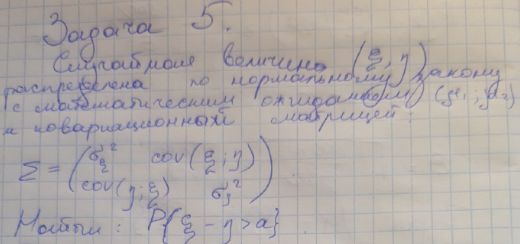 Задача 5.
Случайная величина (ξ; η)
распределена по нормальному закону
с математическим ожиданием (μ₁; μ₂)
и ковариационной матрицей:
Σ = (σ_ξ² cov(ξ; η)
cov(η; ξ) σ_η²).
Найти: P{ξ - η > a}.